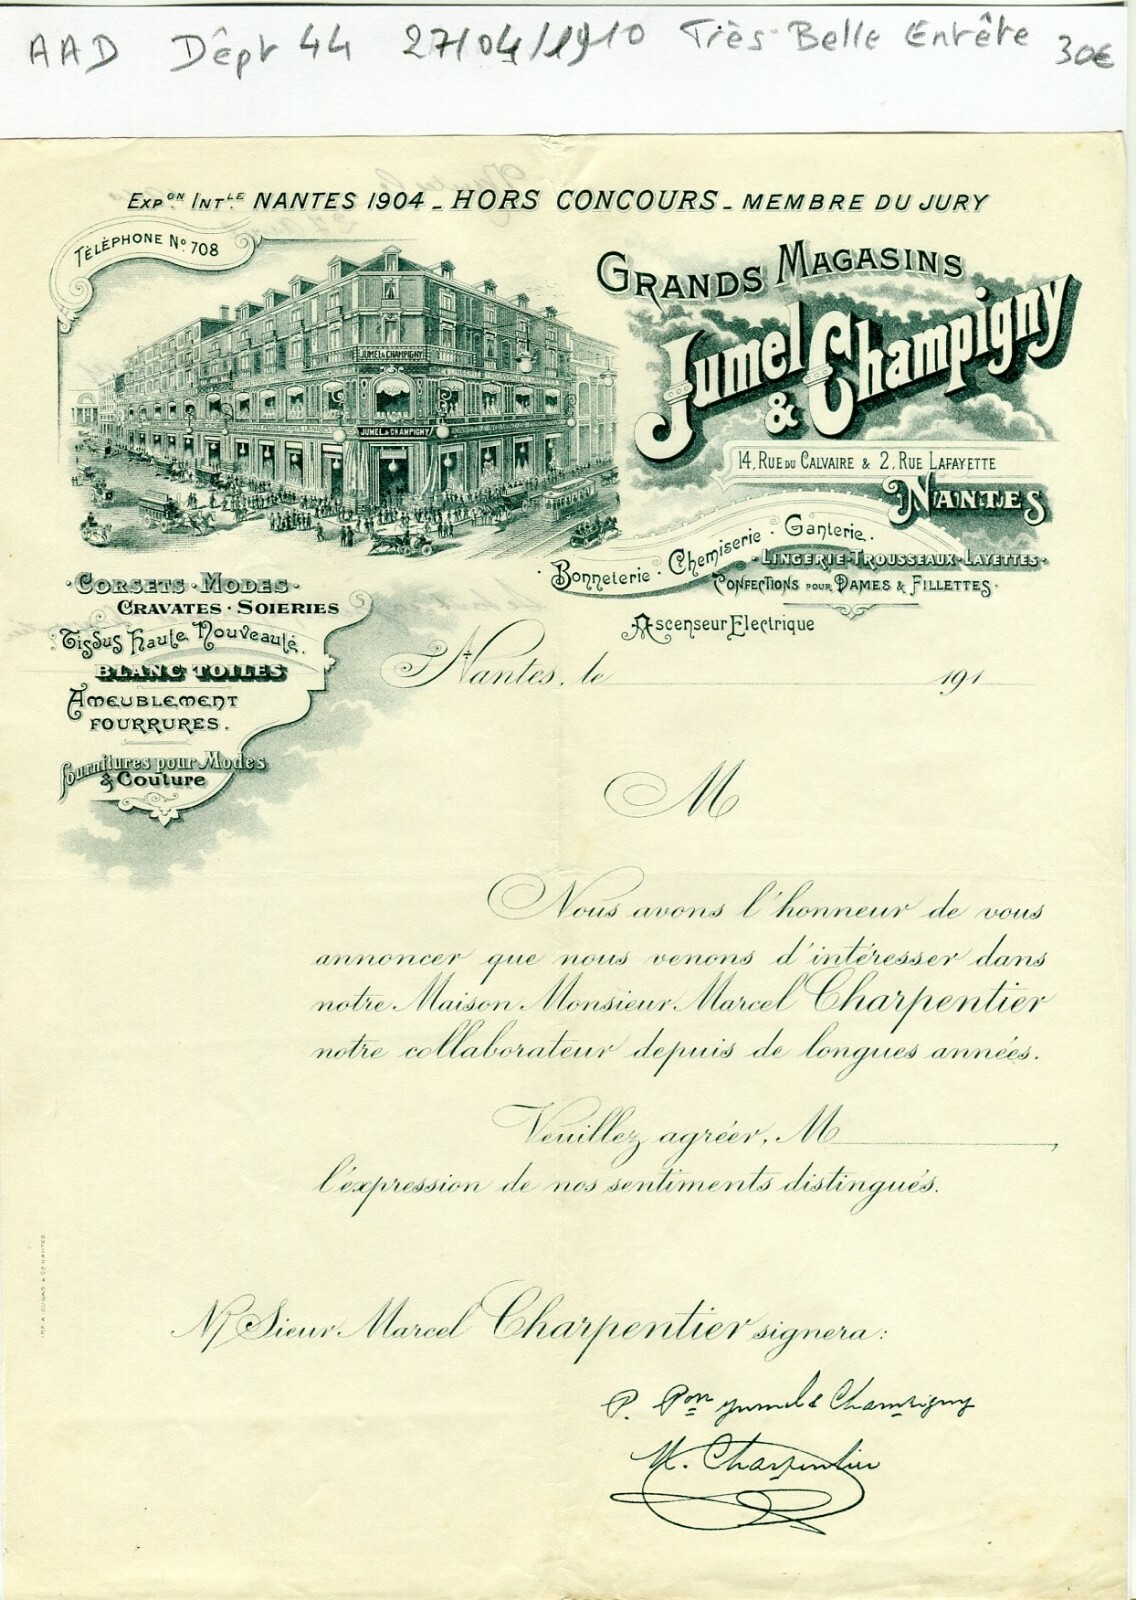 AAD Dêpt 44 27/04/1910 Très Belle Entête 30€
EXPON INTLE NANTES 1904 - HORS CONCOURS - MEMBRE DU JURY
TÉLÉPHONE No 708
JUMEL & CHAMPIGNY
JUMEL & CHAMPIGNY
GRANDS MAGASINS
Jumel & Champigny
14, RUE DU CALVAIRE & 2, RUE LAFAYETTE
NANTES
Bonneterie · Chemiserie · Ganterie.
· LINGERIE · TROUSSEAUX · LAYETTES ·
CONFECTIONS POUR DAMES & FILLETTES ·
Ascenseur Electrique
· CORSETS · MODES ·
CRAVATES · SOIERIES
Tissus Haute Nouveauté.
BLANC TOILES
AMEUBLEMENT
FOURRURES.
Fournitures pour Modes
& Couture
Nantes, le 191
M
Nous avons l'honneur de vous
annoncer que nous venons d'intéresser dans
notre Maison Monsieur Marcel Charpentier
notre collaborateur depuis de longues années.
Veuillez agréer, M ,
l'expression de nos sentiments distingués.
N/ Sieur Marcel Charpentier signera:
P. Pon Jumel & Champigny
M. Charpentier
IMP. A. DUGAS & Cie NANTES